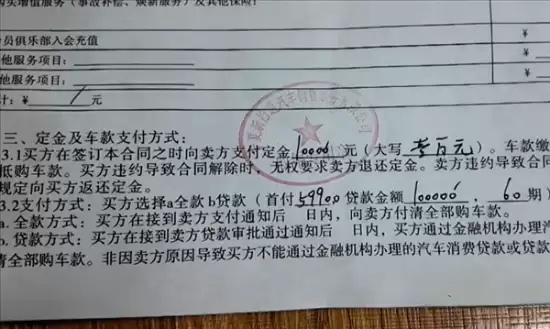 购买增值服务（事故补偿、焕新服务）及其他保险:
会员俱乐部入会充值 ￥
他服务项目: ￥
他服务项目: ￥
计: ￥ / 元
三、定金及车款支付方式:
3.1买方在签订本合同之时向卖方支付定金10000元（大写 壹万元）。车款缴
抵购车款。买方违约导致合同解除时，无权要求卖方退还定金。卖方违约导致合
规定向买方返还定金。
3.2支付方式: 买方选择a全款b贷款（首付59900 贷款金额100000，60期）
a. 全款方式: 买方在接到卖方支付通知后 日内，向卖方付清全部购车款。
b. 贷款方式: 买方在接到卖方贷款审批通过通知后 日内，买方通过金融机构办理汽
清全部购车款。非因卖方原因导致买方不能通过金融机构办理的汽车消费贷款或贷款